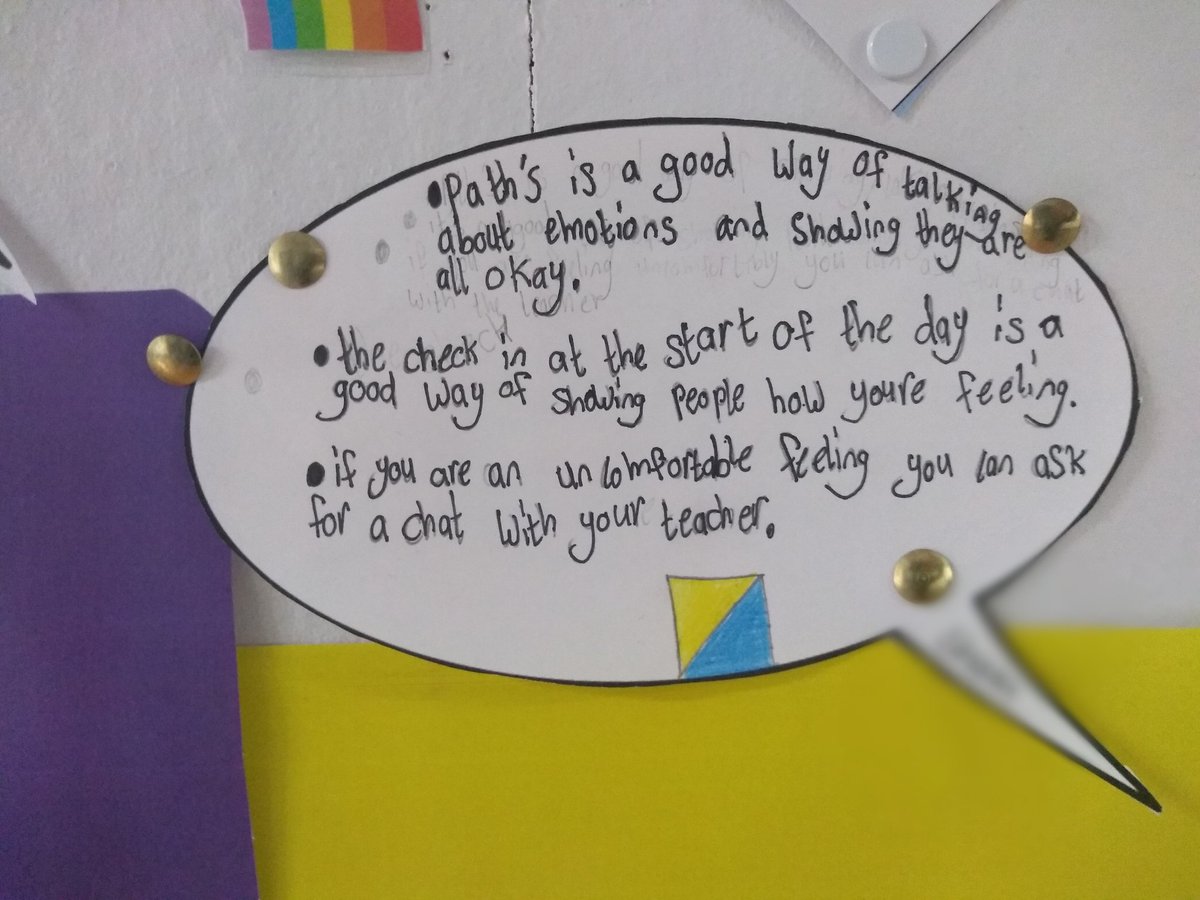 •Path's is a good way of talking
about emotions and showing they are
all okay.
•the check in at the start of the day is a
good way of showing people how youre feeling.
•if you are an uncomfortable feeling you can ask
for a chat with your teacher.